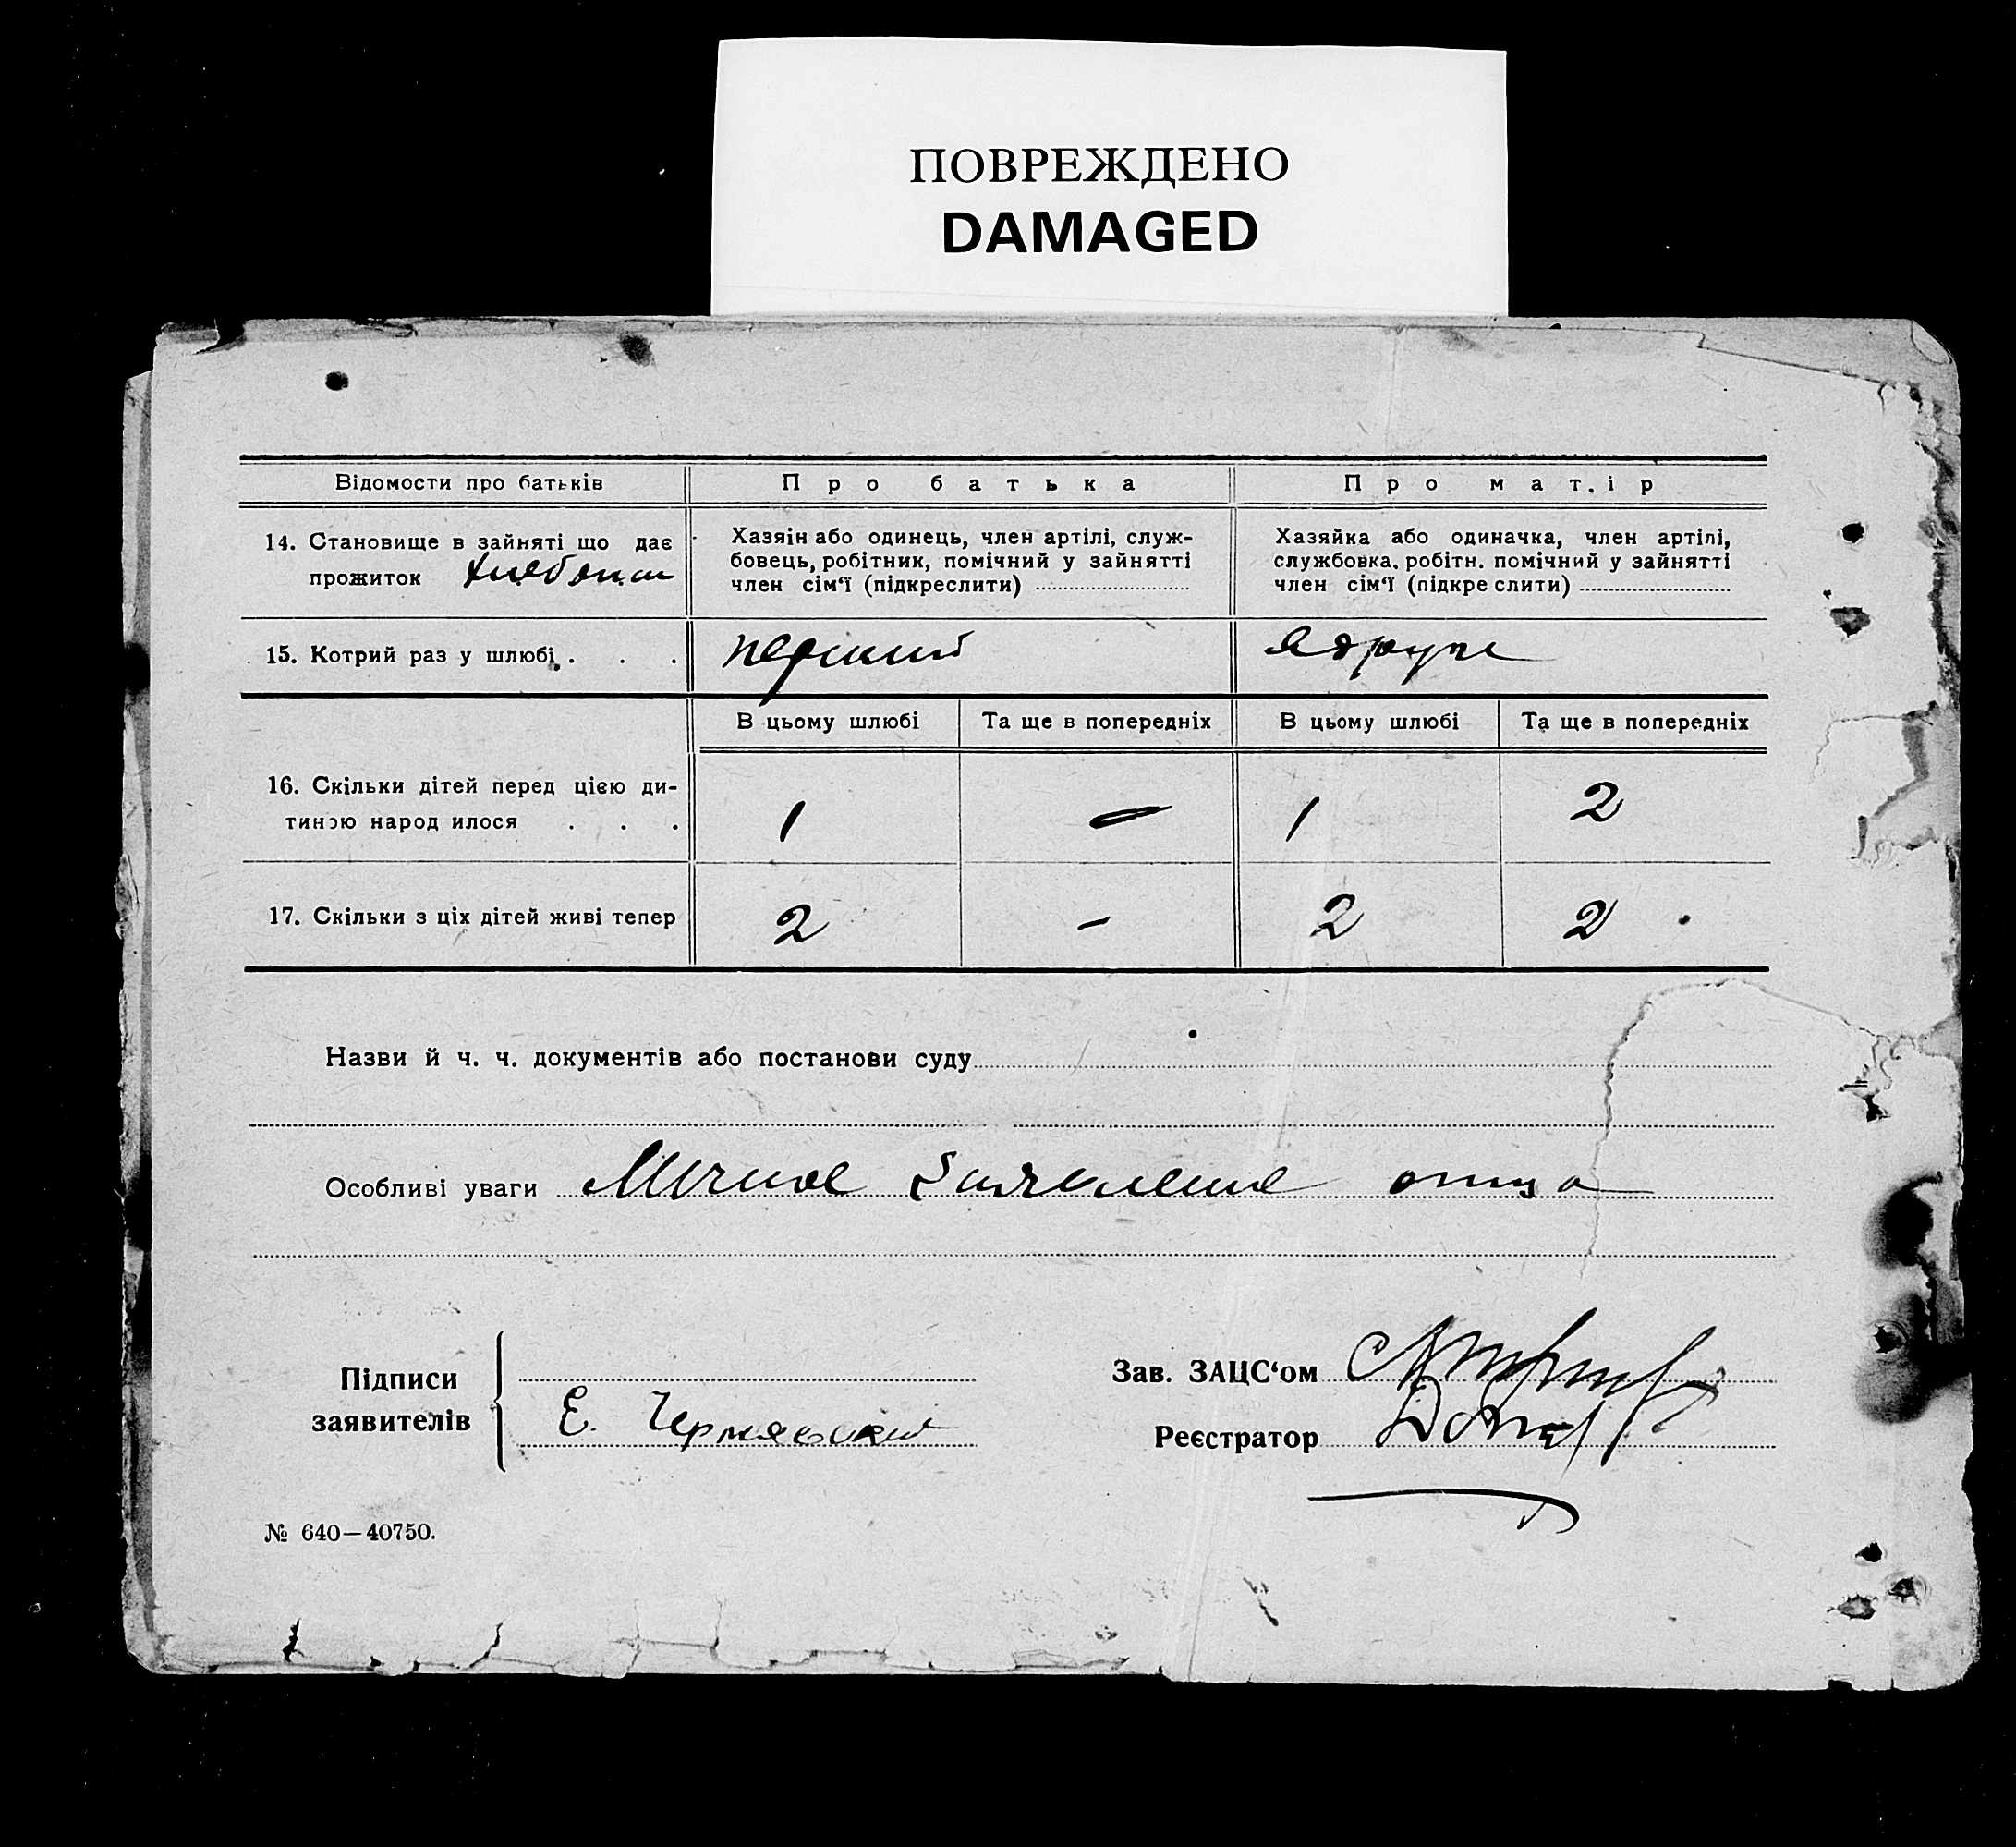 ПОВРЕЖДЕНО
DAMAGED
Відомости про батьків
Про батька
Про матір
14. Становище в зайняті що дає
прожиток
Хазяін або одинець, член артілі, служ-
бовець, робітник, помічний у зайнятті
член сім‘ї (підкреслити)
Хазяйка або одиначка, член артілі,
службовка, робітн. помічний у зайнятті
член сім‘ї (підкре слити)
15. Котрий раз у шлюбі . . .
перший
вдруге
В цьому шлюбі
Та ще в попередніх
В цьому шлюбі
Та ще в попередніх
16. Скільки дітей перед цією ди-
тиною народ илося . . .
1
—
1
2
17. Скільки з ціх дітей живі тепер
2
-
2
2
Назви й ч. ч. документів або постанови суду
Особливі уваги Личное заявление отца
Підписи
заявителів
Е. Чернявский
Зав. ЗАЦС‘ом
Реєстратор
№ 640—40750.